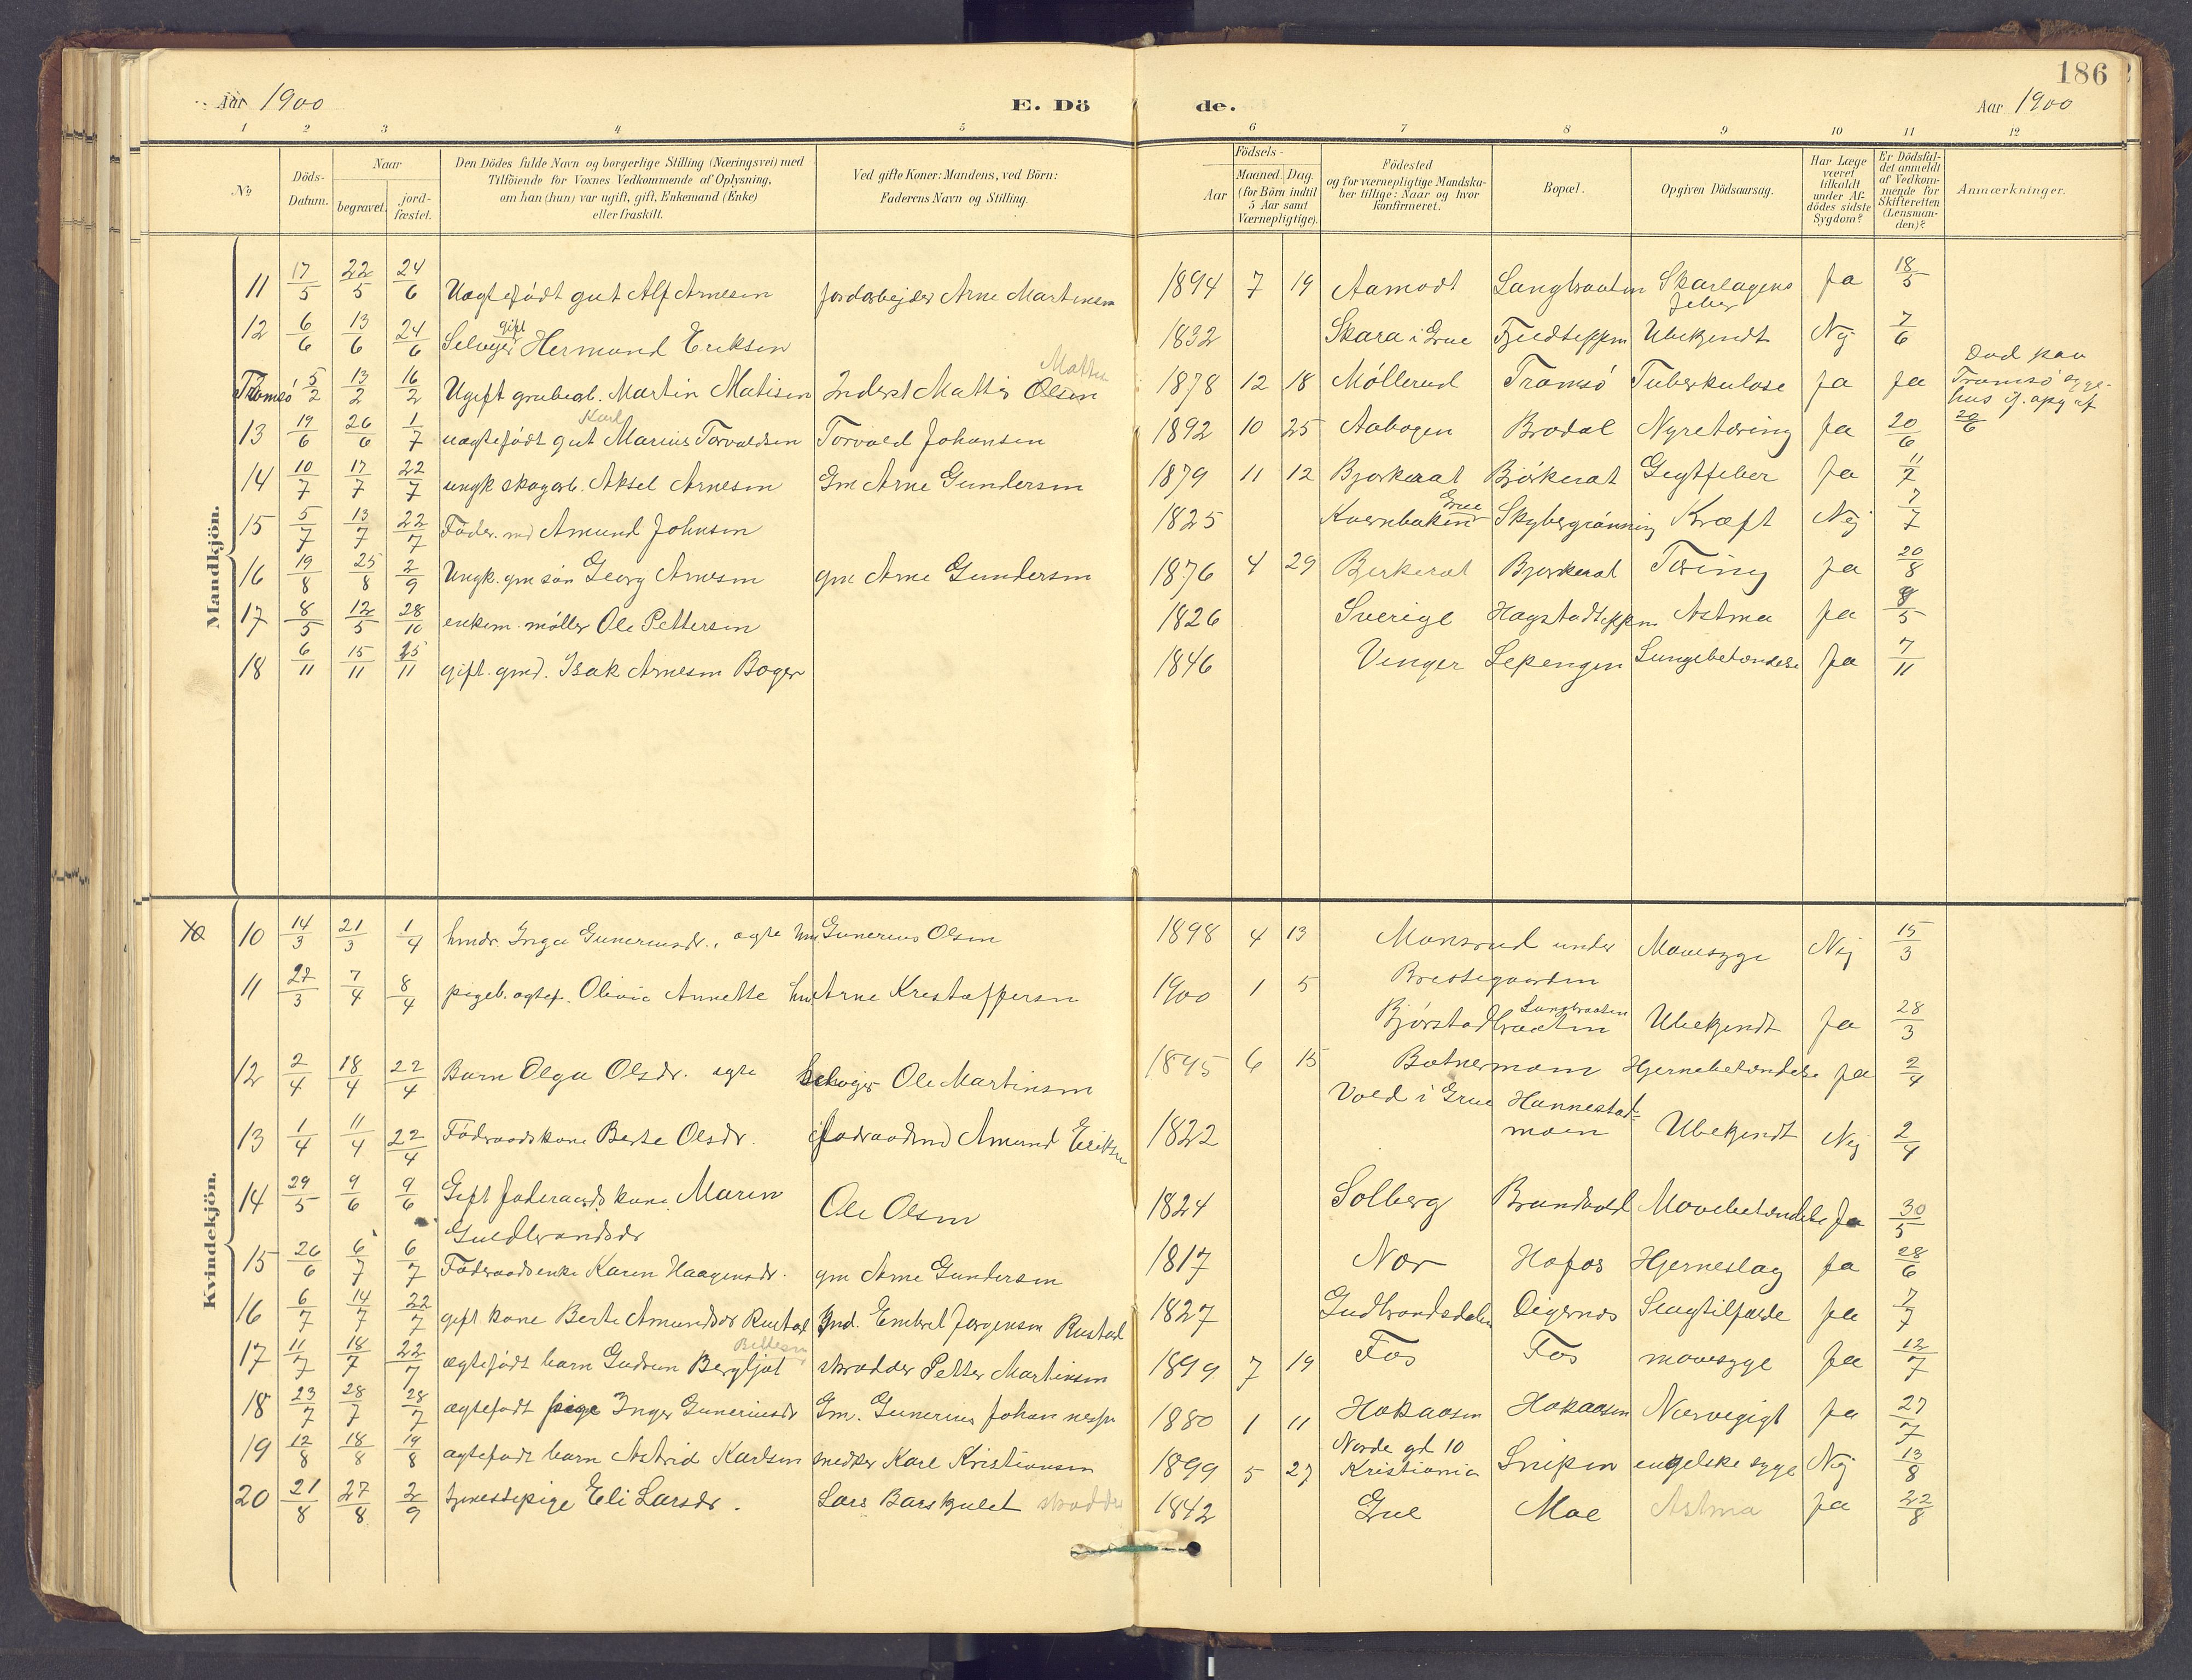 186
Aar 1900 E. Dö de. Aar 1900
1 2 3 4 5 6 7 8 9 10 11 12
No
Döds-Datum.
Naar
begravet.
jord-fæstet.
Den Dödes fulde Navn og borgerlige Stilling (Næringsvei) med
Tilföiende for Voxnes Vedkommende af Oplysning,
om han (hun) var ugift, gift, Enkemand (Enke)
eller fraskilt.
Ved gifte Koner: Mandens, ved Börn:
Faderens Navn og Stilling.
Födsels-
Aar
Maaned. Dag.
(for Börn indtil
5 Aar samt
Værnepligtige).
Födested
og for værnepligtige Mandska-
ber tillige: Naar og hvor
konfirmeret.
Bopæl.
Opgiven Dödsaarsag.
Har Læge
været
tilkaldt
under Af-
dödes sidste
Sygdom?
Er Dödsfal-
det anmeldt
af Vedkom-
mende for
Skifteretten
(Lensman-
den)?
Anmærkninger.
Mandkjön.
11 17/5 22/5 24/6 Uægtefødt gut Alf Arnesen jordarbejder Arne Martinsen 1894 7 19 Aamodt Langbraaten Skarlagens feber Ja 18/5
12 6/6 13/6 24/6 Selvejer gift Hermand Eriksen 1832 Skara i Grue Fjeldseppen Ubekjendt Nej 7/6
Tromsö 5/2 13/2 16/2 Ugift grubearb. Martin Matisen Inderst Mattis Olsen Mattis 1878 12 18 Möllerud Tromsö Tuberkulose Ja Ja Död paa Tromsö syge-hus if. opg af 20/6
13 19/6 26/6 1/7 uægtefødt gut Karl Marius Torvaldsen Torvald Johansen 1892 10 25 Aabogen Brodal Nyretæring Ja 20/6
14 10/7 17/7 22/7 ungk skogarb. Aksel Arnesen Gm Arne Gundersen 1879 11 12 Bjørkerat Bjørkerat Gigtfeber Ja 11/7
15 5/7 13/7 22/7 Föder. md Amund Johnsen 1825 Kvernbakken Grue Skybergrønning Kræft Nej 7/7
16 19/8 25/8 2/9 Ungk. gm søn Georg Arnesen gm Arne Gundersen 1876 4 29 Berkerat Bjørkerat Tæring Ja 20/8
17 8/5 12/5 28/10 enkem. møller Ole Pettersen 1826 Sverige Hagstadseppen Astma Ja 9/5
18 6/11 15/11 25/11 gift. gmd. Isak Arnesen Boger 1846 Vinger Sepengen Lungebetændelse Ja 7/11
Kvindekjön.
10 10 14/3 21/3 1/4 hmdr. Inga Guneriusdr., ægte hm Gunerius Olsen 1898 4 13 Monsrud under Brestegaarden Mavesyge Nej 15/3
11 27/3 7/4 8/4 pigeb. ægtef. Olivie Annette hm Arne Kristoffersen 1900 1 5 Bjørstadbraaten Langbraaten Ubekjendt Ja 28/3
12 2/4 18/4 22/4 Barn Olga Olsdr. ægte Selvejer Ole Martinsen 1895 6 15 Botnermoen Hjernebetændelse Ja 2/4
13 1/4 11/4 22/4 Födraadskone Berte Olsdr. födraadmd Amund Eriksen 1822 Vold i Grue Hannestad-moen Ubekjendt Nej 2/4
14 29/5 9/6 9/6 Gift föderaadskone Maren Guldbrandsdr Ole Olsen 1824 Solberg Brandvold Mavebetændelse Ja 30/5
15 26/6 6/7 6/7 Födraadsenke Karen Haagensdr. gm Arne Gundersen 1817 Nor Hofos Hjerneslag Ja 28/6
16 6/7 14/7 22/7 gift kone Berte Amundsdr Rustad Ind. Embret Jørgensen Rustad 1827 Gudbrandsdalen Digernes Slagtilfælde Ja 7/7
17 11/7 18/7 22/7 ægtefødt barn Gudrun Bergljot Pettersen skrædder Petter Martinsen 1899 7 19 Fos Fos mavesyge Ja 12/7
18 23/7 28/7 28/7 ægtefødt pige Inger Gunerius dr Gm. Gunerius Johannesen 1880 1 11 Hokaasen Hokaasen Nervegigt Ja 27/7
19 12/8 18/8 19/8 ægtefødt barn Astrid Karlsen snedker Karl Kristiansen 1899 5 27 Norde gd 10 Kristiania Snipen engelske syge Nej 13/8
20 21/8 27/8 2/9 tjenestepige Eli Larsdr. Lars Barskjulet skrædder 1842 Grue Moe Astma Ja 22/8